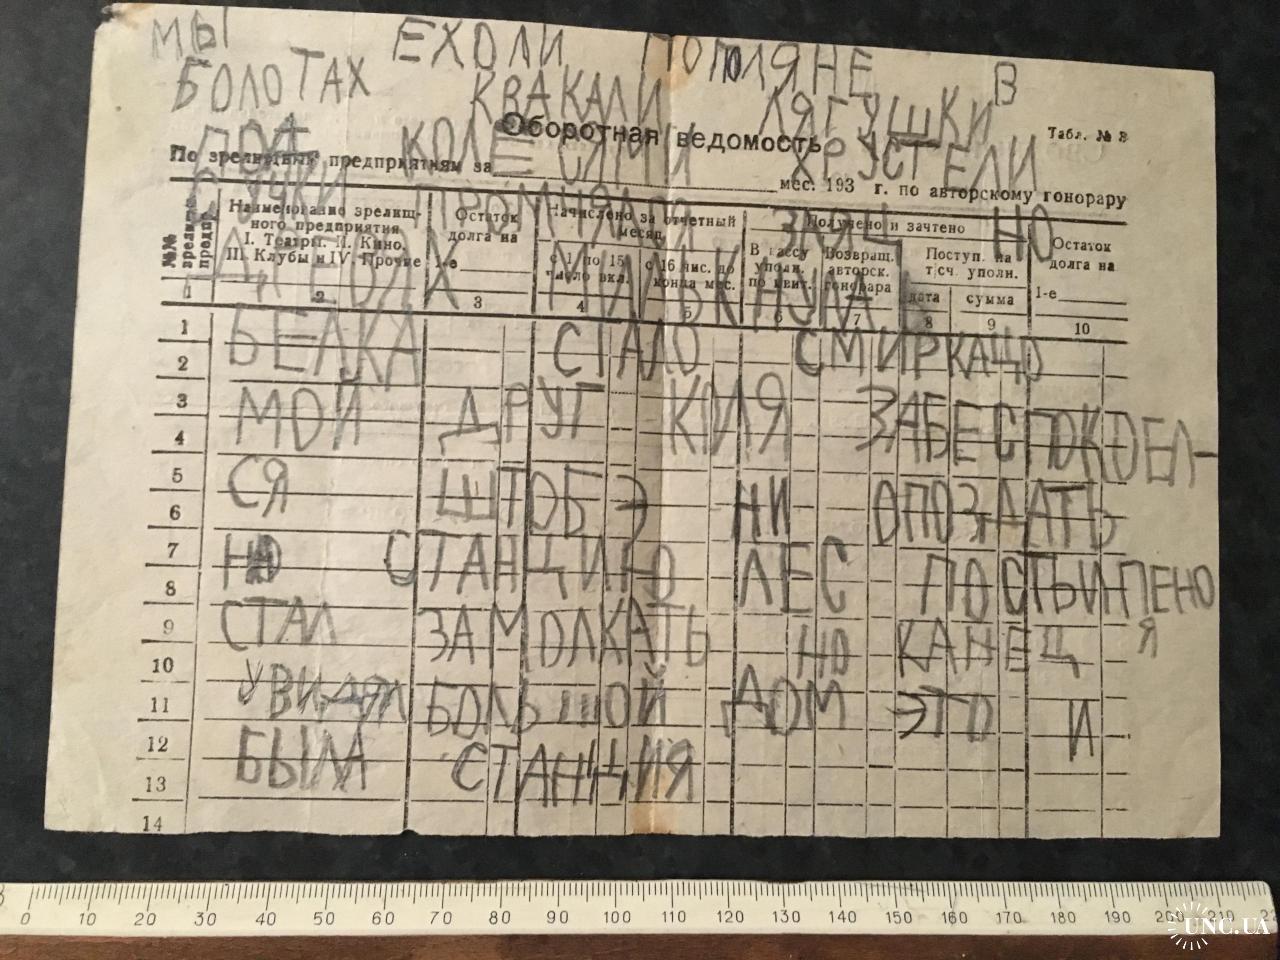 МЫ ЕХОЛИ ПОПОЛЯНЕ В
БОЛОТАХ КВАКАЛИ ЛЯГУШКИ
Оборотная ведомость
Табл. № 8
ПОД КОЛЕСАМИ ХРУСТЕЛИ
По зрелищным предприятиям за мес. 193 г. по авторскому гонорару
СУЧКИ ПРОМЧЯЛСЯ ЗЯЦ НО
№№ зрелищн. предпр.
Наименование зрелищного предприятия
I. Театры. II. Кино.
III. Клубы и IV. Прочие
Остаток долга на
1-е
Начислено за отчетный месяц
с 1 по 15 число вкл.
с 16 чис. до конца мес.
Получено и зачтено
В кассу уполн. по квит.
Возвращ. авторск. гонорара
Поступ. на т/сч. уполн.
дата
сумма
Остаток долга на
1-е
МЕЛЬКНУЛА
1 2 3 4 5 6 7 8 9 10
1
БЕЛКА СТАЛО СМИРКАЦО
2
3
МОЙ ДРУГ КОЛЯ ЗАБЕСПОКОЕЛ-
4
5
СЯ ШТОБЭ НИ ОПОЗДАТЬ
6
7
НА СТАНЦИЮ ЛЕС ПОСТЬИПЕНО
8
9
СТАЛ ЗАМОЛКАТЬ НО КАНЕЦ Я
10
УВИДЯЛ БОЛЬШОЙ ДОМ ЭТО И
11
12
БЫЛА СТАНЦИЯ
13
14
0 10 20 30 40 50 60 70 80 90 100 110 120 130 140 150 160 170 180 190 200 210
UNC.UA